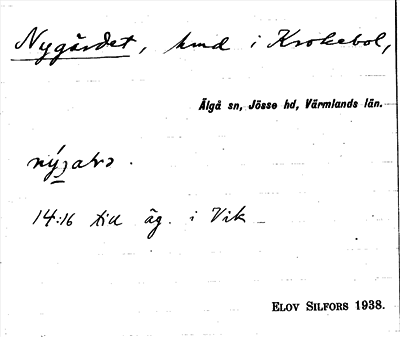 Nygårdet, hmd i Krokebol,
Älgå sn, Jösse hd, Värmlands län.
14:16 till äg. i Vik
ELOV SILFORS 1938.